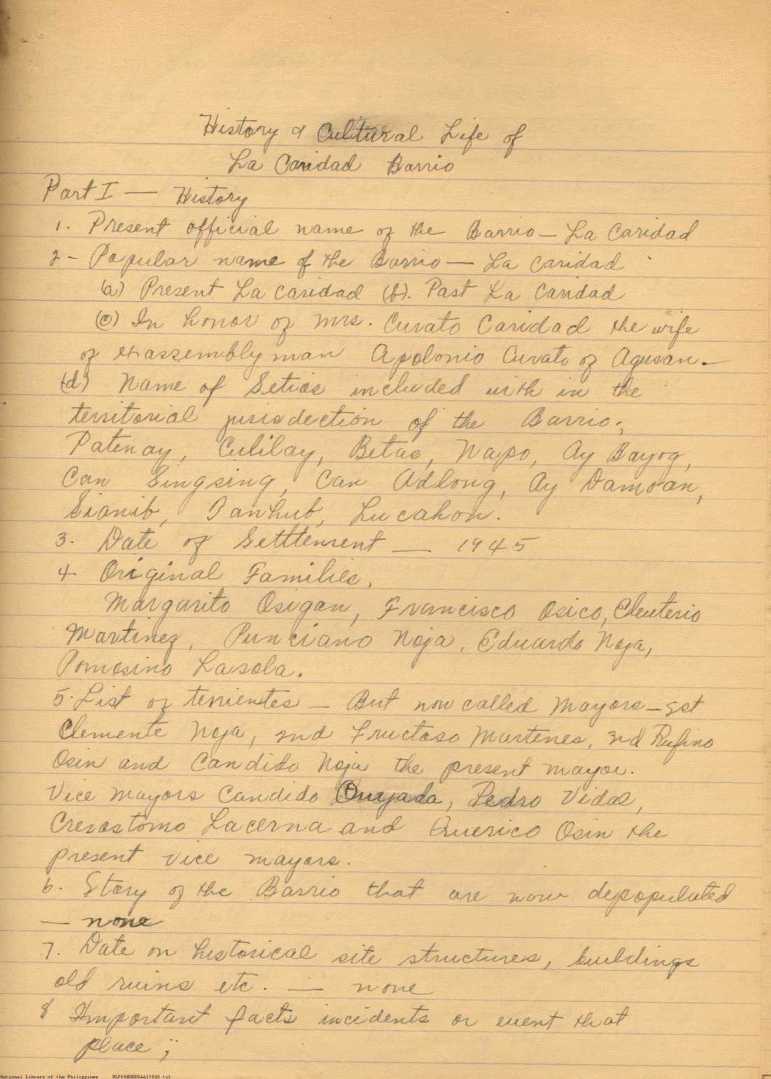 History & Cultural Life of
La Caridad Barrio
Part I — History
1. Present official name of the Barrio — La Caridad
2 - Popular name of the Barrio — La Caridad
(a) Present La Caridad (b). Past La Caridad
(c) In honor of Mrs. Curato Caridad the wife
of exassembly man Apolonio Curato of Agusan.
(d) Name of Setios included with in the
territorial jurisdection of the Barrio;
Patenay, Culilay, Betao, Wapo, Ay Bayog,
Can Singsing, Can Adlong, Ay Damoan,
Sianib, Danhub, Lucahon.
3. Date of Setttement — 1945
4 Original Families.
Margarito Osigan, Francisco Osico, Eleuterio
Martinez, Punciano Noja, Eduardo Noja,
Pomosino Lasola.
5. List of tenientes — But now called Mayors — 1st
Clemente Noja, 2nd Fructoso Martenes, 3rd Rufino
Osin and Candido Noja the present mayor.
Vice mayors Candido Ouyada, Pedro Vidal,
Cresostomo Lacerna and Querico Osin the
present vice mayors.
6. Story of the Barrio that are now depopulated
— none
7. Date on historical site structures, buildings
old ruins etc. — none
8 Important facts incidents or event that
place ;
National Library of the Philippines